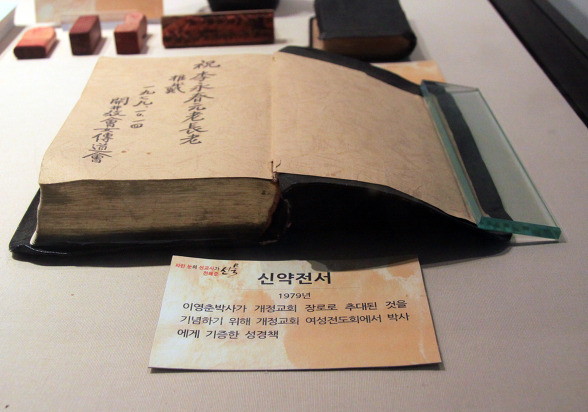 祝 李永春元老長老
推戴
開井敎會女傳道會
신약전서
1979년
이영춘박사가 개정교회 장로로 추대된 것을
기념하기 위해 개정교회 여성전도회에서 박사
에게 기증한 성경책